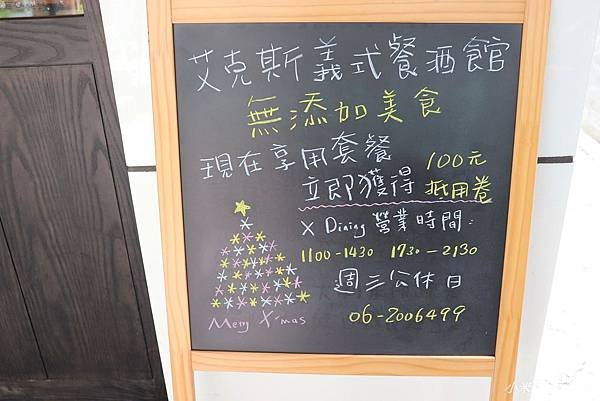 艾克斯義式餐酒館
無添加美食
現在享用套餐
立即獲得 100元
抵用卷
X Dining 營業時間:
1100-1430 1730-2130
週三公休日
06-2006499
Merry X'mas
小米